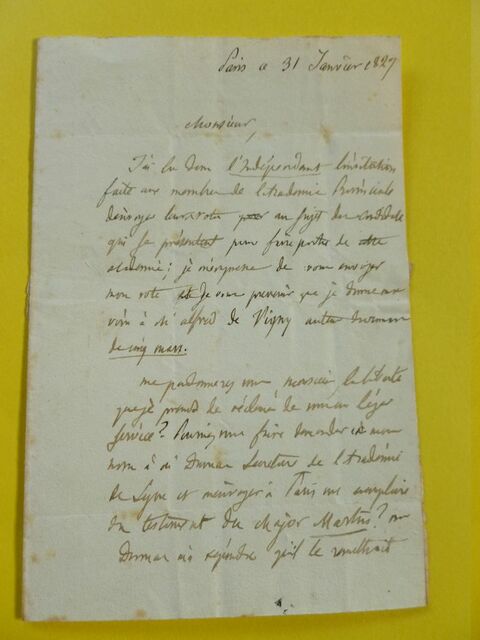 Paris ce 31 Janvier 1827
Monsieur,
J'ai lu dans l'Indépendant l'invitation
faite aux membres de l'Académie Provinciale
d'envoyer leur vote au sujet des Candidats
qui se présentent pour faire partie de
académie; je m'empresse de vous envoyer
mon vote et de vous prévenir que je donne ma
voix à Mr alfred de Vigny auteur du roman
de cinq mars.
me pardonnerez vous monsieur, la liberté
que je prends de réclamer de vous un léger
service? Pourriez vous faire demander en mon
nom à Mr Dumas Secrétaire de l'Académie
de Lyon et m'envoyer à Paris un exemplaire
du testament du Major Martin? Mr
Dumas m'a répondre qu'il le remettrait